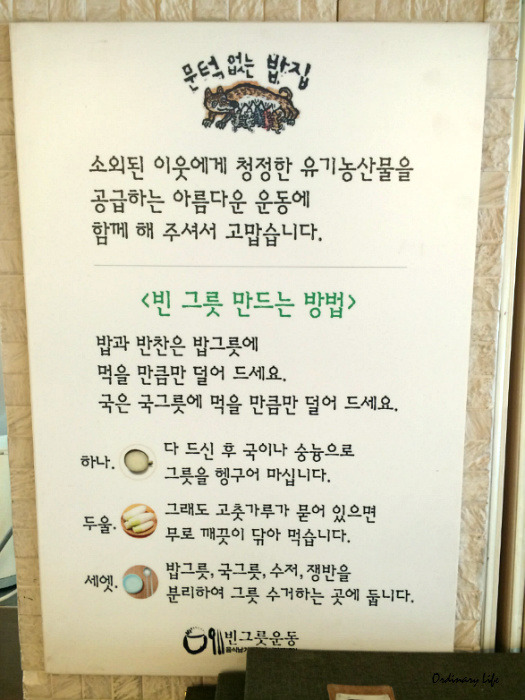 문턱 없는 밥집
소외된 이웃에게 청정한 유기농산물을
공급하는 아름다운 운동에
함께 해 주셔서 고맙습니다.
<빈 그릇 만드는 방법>
밥과 반찬은 밥그릇에
먹을 만큼만 덜어 드세요.
국은 국그릇에 먹을 만큼만 덜어 드세요.
하나. 다 드신 후 국이나 숭늉으로
그릇을 헹구어 마십니다.
두울. 그래도 고춧가루가 묻어 있으면
무로 깨끗이 닦아 먹습니다.
세엣. 밥그릇, 국그릇, 수저, 쟁반을
분리하여 그릇 수거하는 곳에 둡니다.
빈그릇운동
Ordinary Life